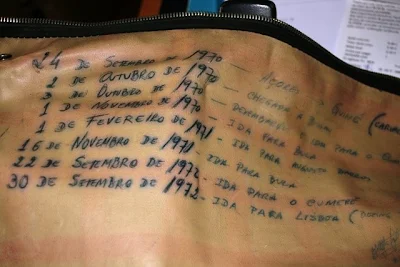 24 DE SETEMBRO - 1970 -
2 DE OUTUBRO DE 1970 - CHEGADA A
3 DE OUTUBRO DE 1970 - IDA PARA O
1 DE NOVEMBRO DE 1970 - IDA PARA BULA
1 DE FEVEREIRO DE 1971 - IDA PARA
16 DE NOVEMBRO DE 1971 - IDA PARA BULA
22 DE SETEMBRO DE 1972 - IDA PARA O CUMERÉ
30 DE SETEMBRO DE 1972 - IDA PARA LISBOA (BOEING